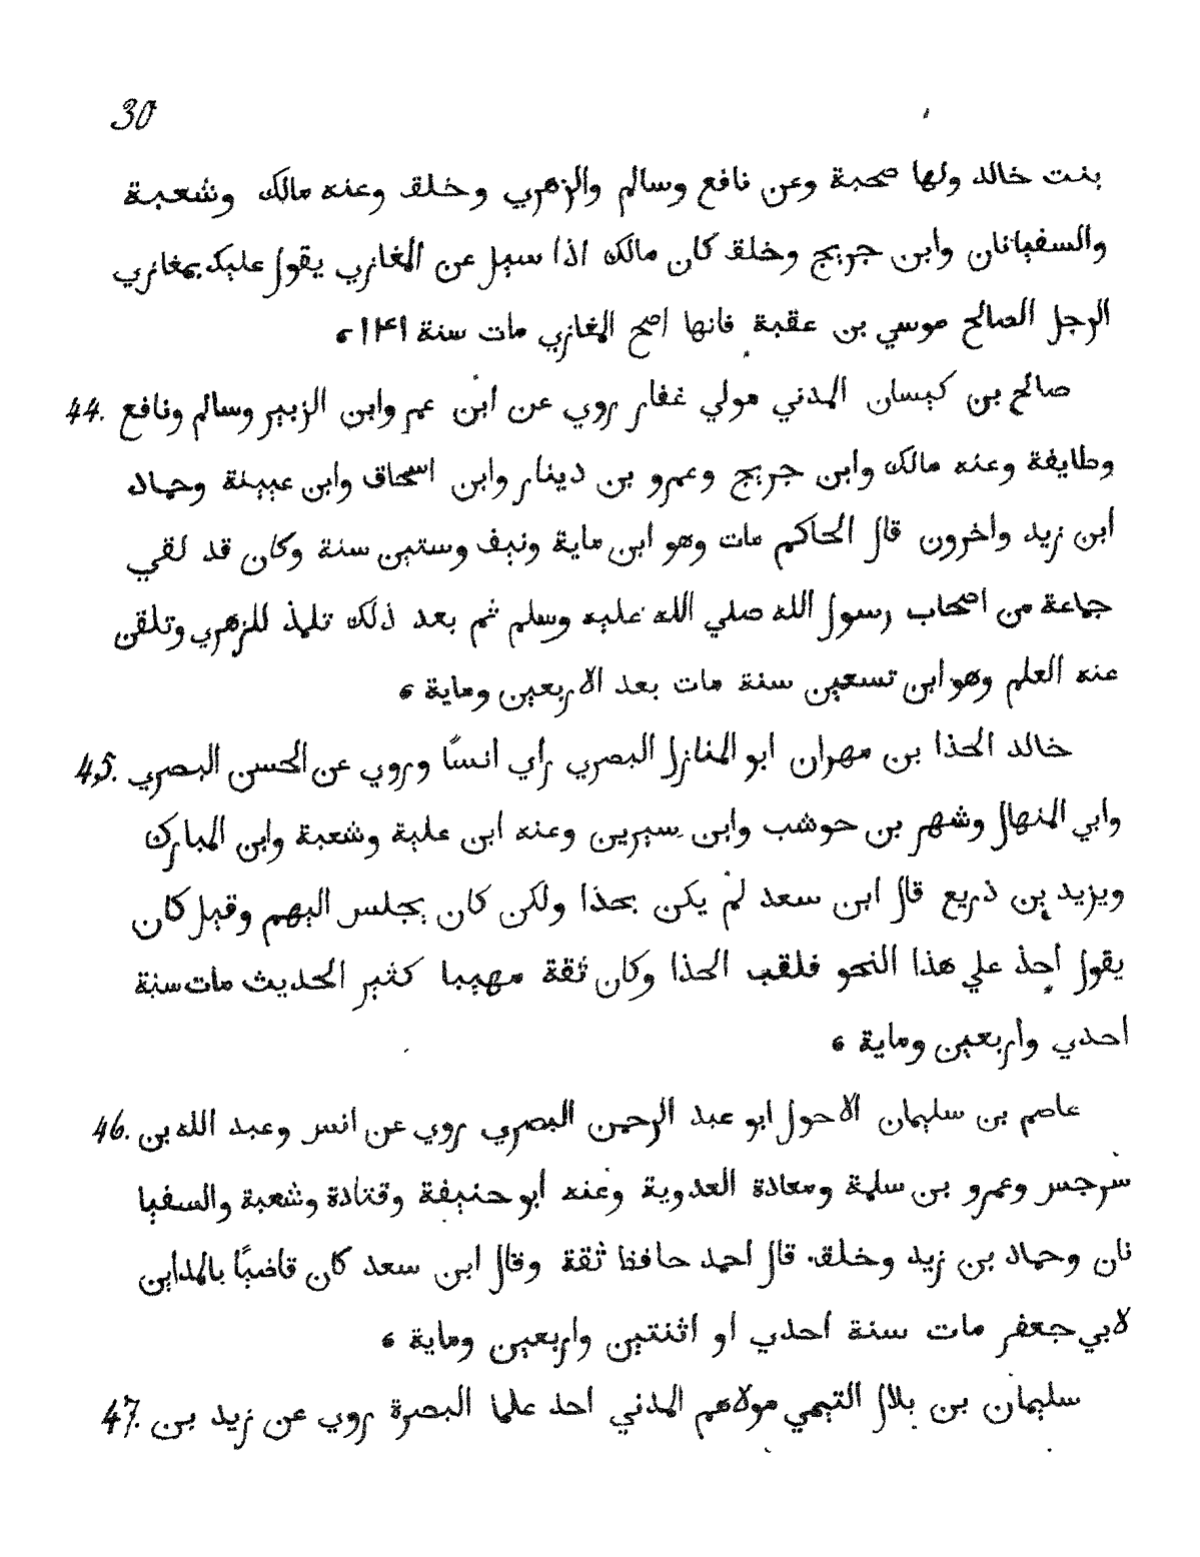 30
بنت خالد ولها صحبة وعن نافع وسالم والزهري وخلق وعنه مالك وشعبة
والسفيانان وابن جريج وخلق كان مالك اذا سيل عن المغازي يقول عليك بمغازي
الرجل الصالح موسي بن عقبة فانها اصح المغازي مات سنة ١٤١ ه
44. صالح بن كيسان المدني مولي غفار روي عن ابن عمر وابن الزبير وسالم ونافع
وطايفة وعنه مالك وابن جريج وعمرو بن دينار وابن اسحاق وابن عيينة وحماد
ابن زيد واخرون قال الحاكم مات وهو ابن ماية ونيف وستين سنة وكان قد لقي
جماعة من اصحاب رسول الله صلي الله عليه وسلم ثم بعد ذلك تلمذ للزهري وتلقن
عنه العلم وهو ابن تسعين سنة مات بعد الاربعين وماية ه
45. خالد الحذا بن مهران ابو المنازل البصري راي انسًا وروي عن الحسن البصري
وابي المنهال وشهر بن حوشب وابن سيرين وعنه ابن علية وشعبة وابن المبارك
ويزيد بن ذريع قال ابن سعد لم يكن بحذا ولكن كان يجلس اليهم وقيل كان
يقول احذ علي هذا النحو فلقب الحذا وكان ثقة مهيبا كثير الحديث مات سنة
احدي واربعين وماية ه
46. عاصم بن سليمان الاحول ابو عبد الرحمن البصري روي عن انس وعبد الله بن
سرجس وعمرو بن سلمة ومعادة العدوية وعنه ابو حنيفة وقتادة وشعبة والسفيا
نان وحماد بن زيد وخلق قال احمد حافظ ثقة وقال ابن سعد كان قاضيًا بالمداين
لابي جعفر مات سنة احدي او اثنتين واربعين وماية ه
47. سليمان بن بلال التيمي مولاهم المدني احد علما البصرة روي عن زيد بن